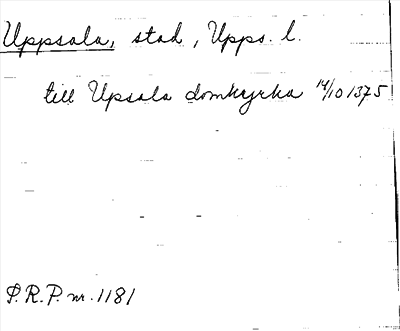 Uppsala, stad, Upps. l.
till Upsala domkyrka 14/10 1375
P.R.P. nr. 1181